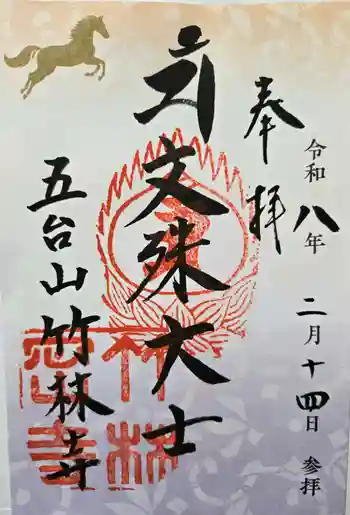 奉拝
令和八年 二月十四日 参拝
文殊大士
五台山竹林寺
竹林
寺